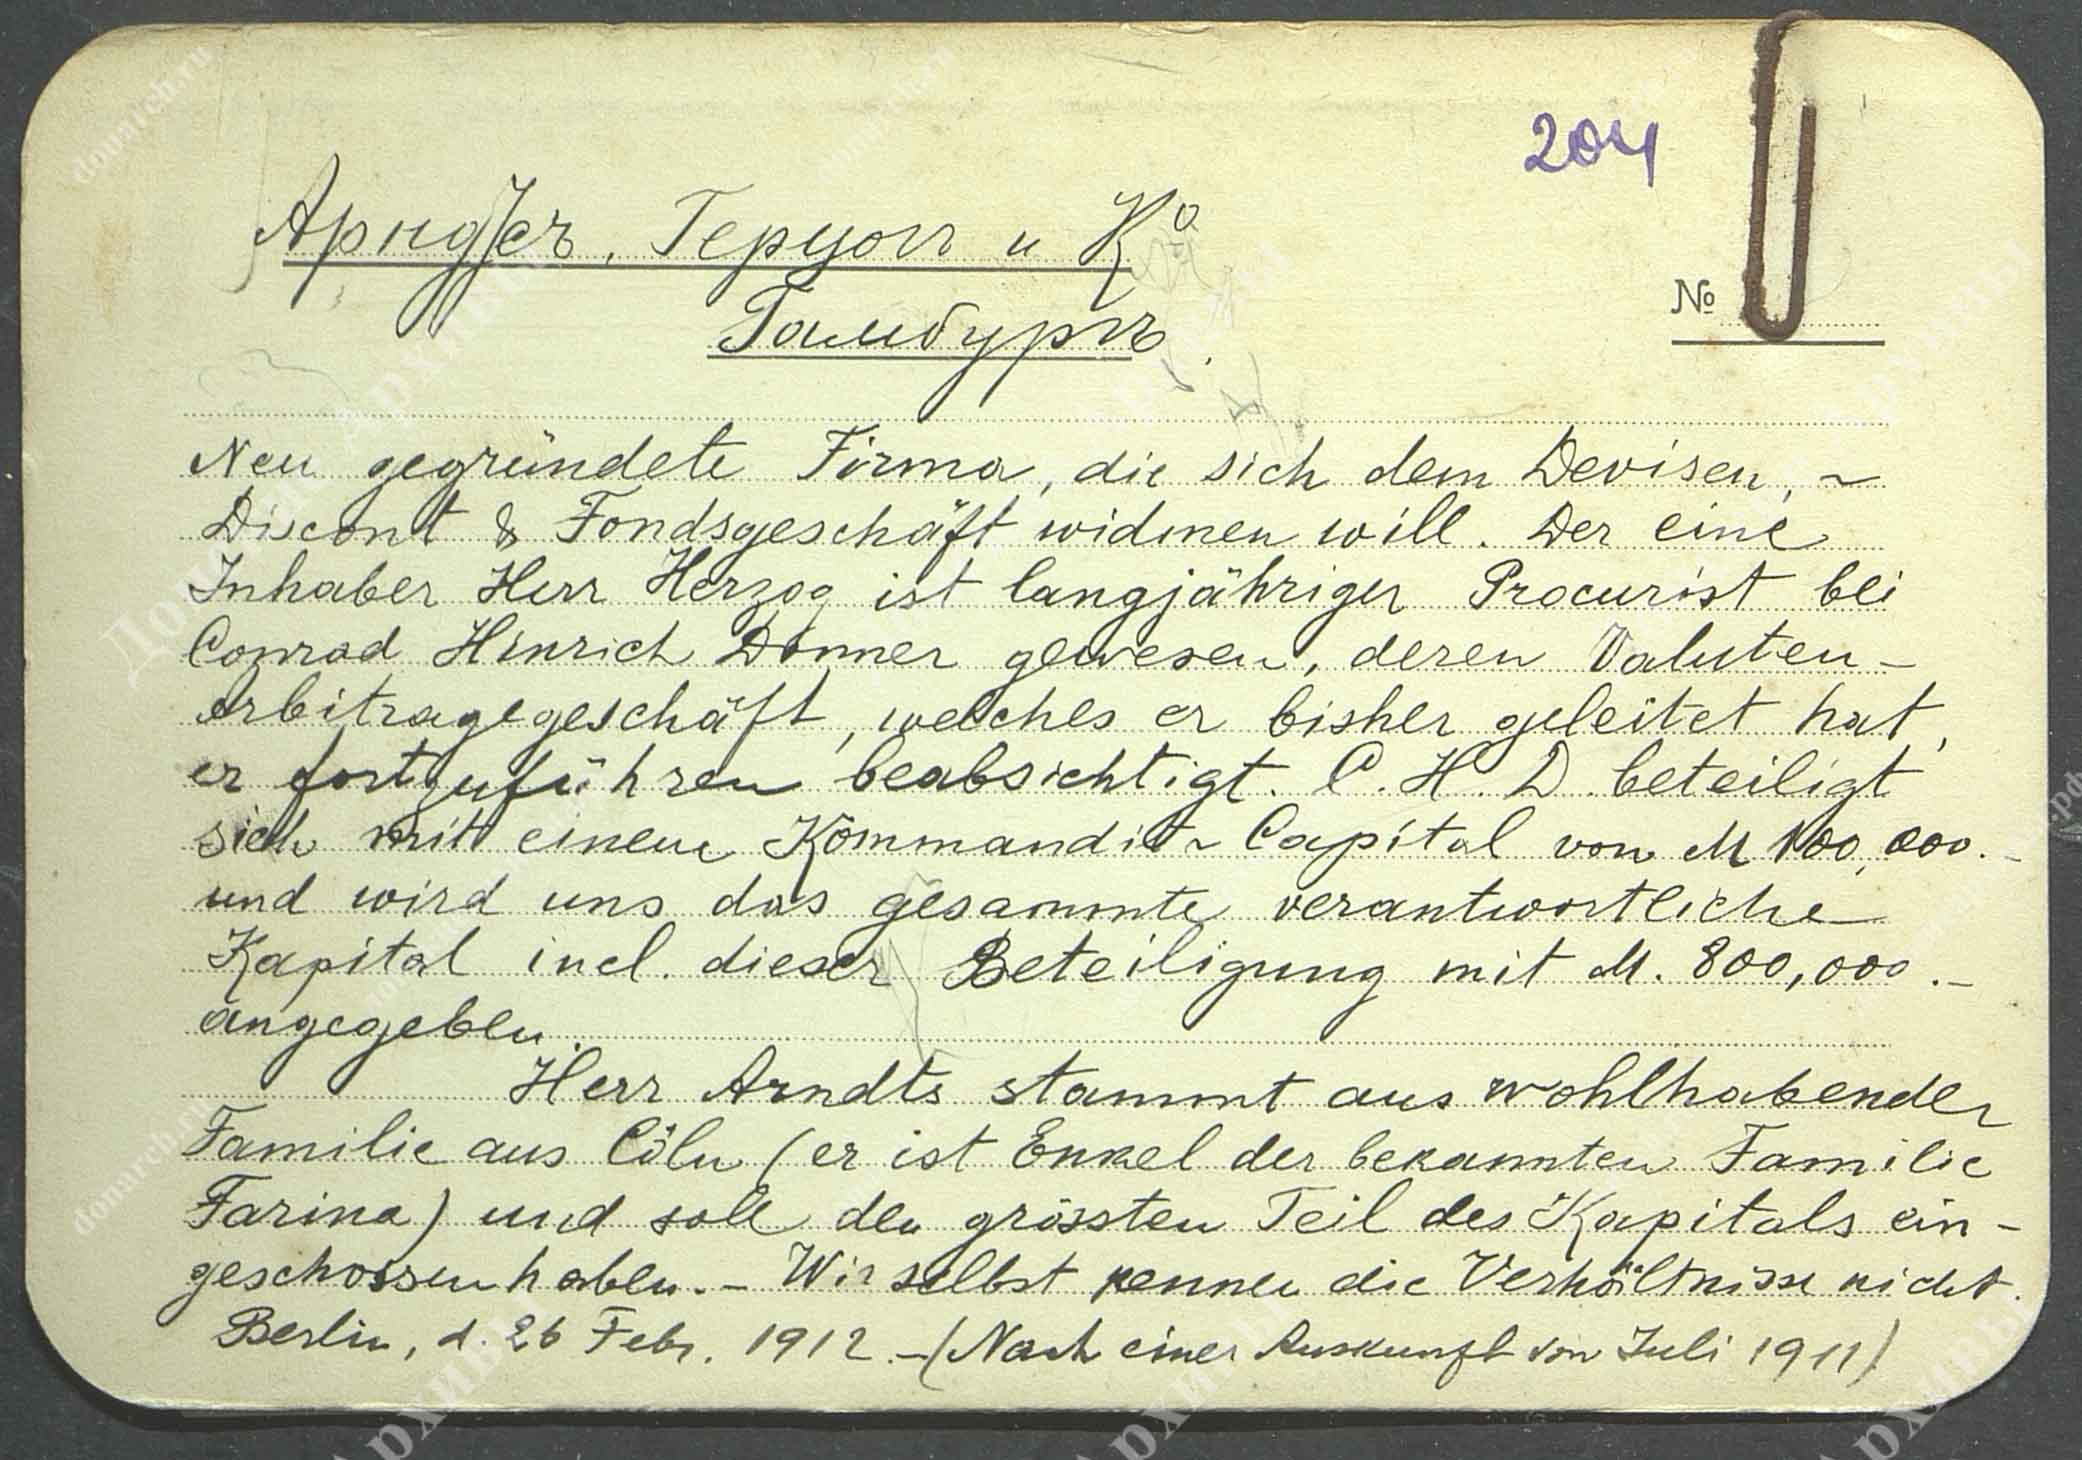 204
Арндтсъ, Герцогъ и Ко
№
Гамбургъ.
Neu gegründete Firma, die sich dem Devisen, -
Discont & Fondsgeschäft widmen will. Der eine
Inhaber Herr Herzog ist langjähriger Procurist bei
Conrad Hinrich Donner gewesen, deren Valuten-
Arbitragegeschäft, welches er bisher geleitet hat,
er fortzuführen beabsichtigt. C. H. D. beteiligt
sich mit einem Kommandit - Capital von M 100,000.-
und wird uns das gesammte verantwortliche
Kapital incl. dieser Beteiligung mit M. 800,000.-
angegeben.
Herr Arndts stammt aus wohlhabender
Familie aus Cöln (er ist Enkel der bekannten Familie
Farina) und soll den grössten Teil des Kapitals ein-
geschossen haben. - Wir selbst kennen die Verhältnisse nicht.
Berlin, d. 26 Febr. 1912. - (Nach einer Auskunft von Juli 1911)